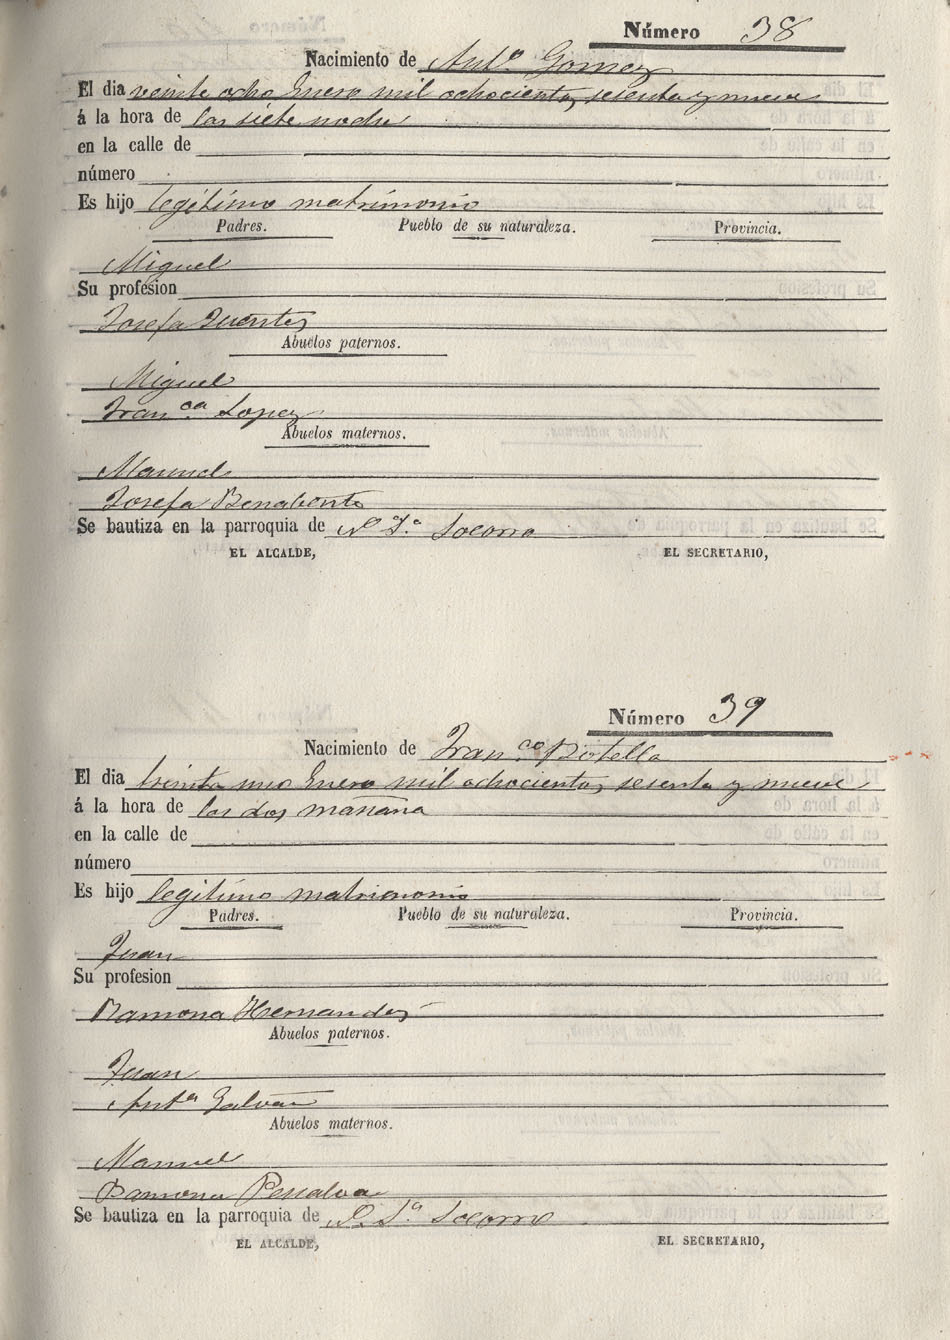 Número 38
Nacimiento de Antº Gomez
El dia veinte ocho Enero mil ochocientos sesenta y nueve
á la hora de las siete noche
en la calle de
número
Es hijo legitimo matrimonio
Padres. Pueblo de su naturaleza. Provincia.
Miguel
Su profesion
Josefa Fuentes
Abuelos paternos.
Miguel
Franca Lopez
Abuelos maternos.
Manuel
Josefa Benabente
Se bautiza en la parroquia de Sª Socorro
EL ALCALDE, EL SECRETARIO,
Número 39
Nacimiento de Franco Botella
El dia treinta uno Enero mil ochocientos sesenta y nueve
á la hora de las dos mañana
en la calle de
número
Es hijo legitimo matrimonio
Padres. Pueblo de su naturaleza. Provincia.
Juan
Su profesion
Ramona Hernandez
Abuelos paternos.
Juan
Antª Galvañ
Abuelos maternos.
Manuel
Ramona Penalva
Se bautiza en la parroquia de Sª Socorro
EL ALCALDE, EL SECRETARIO,